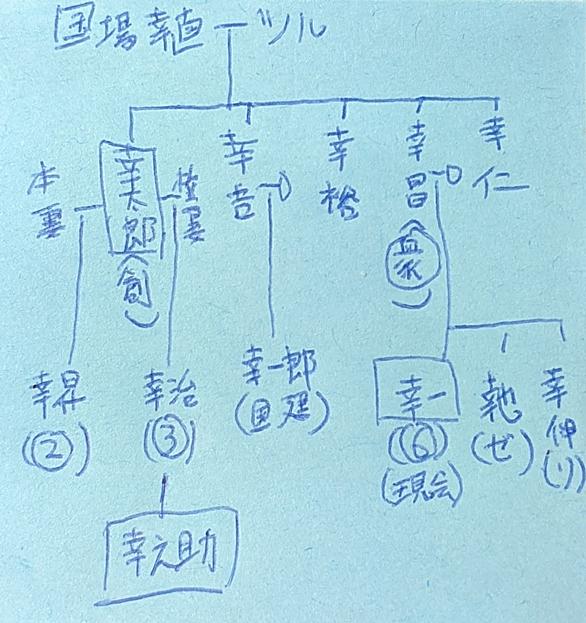 国場幸植 ツル
本妻
幸太郎
(創)
幸吉
幸裕
幸昌
(衆)
幸仁
幸昇
(②)
幸治
(③)
幸一郎
(国建)
幸一
(⑥)
(現会)
(ゼ)
幸伸
(リ)
幸之助